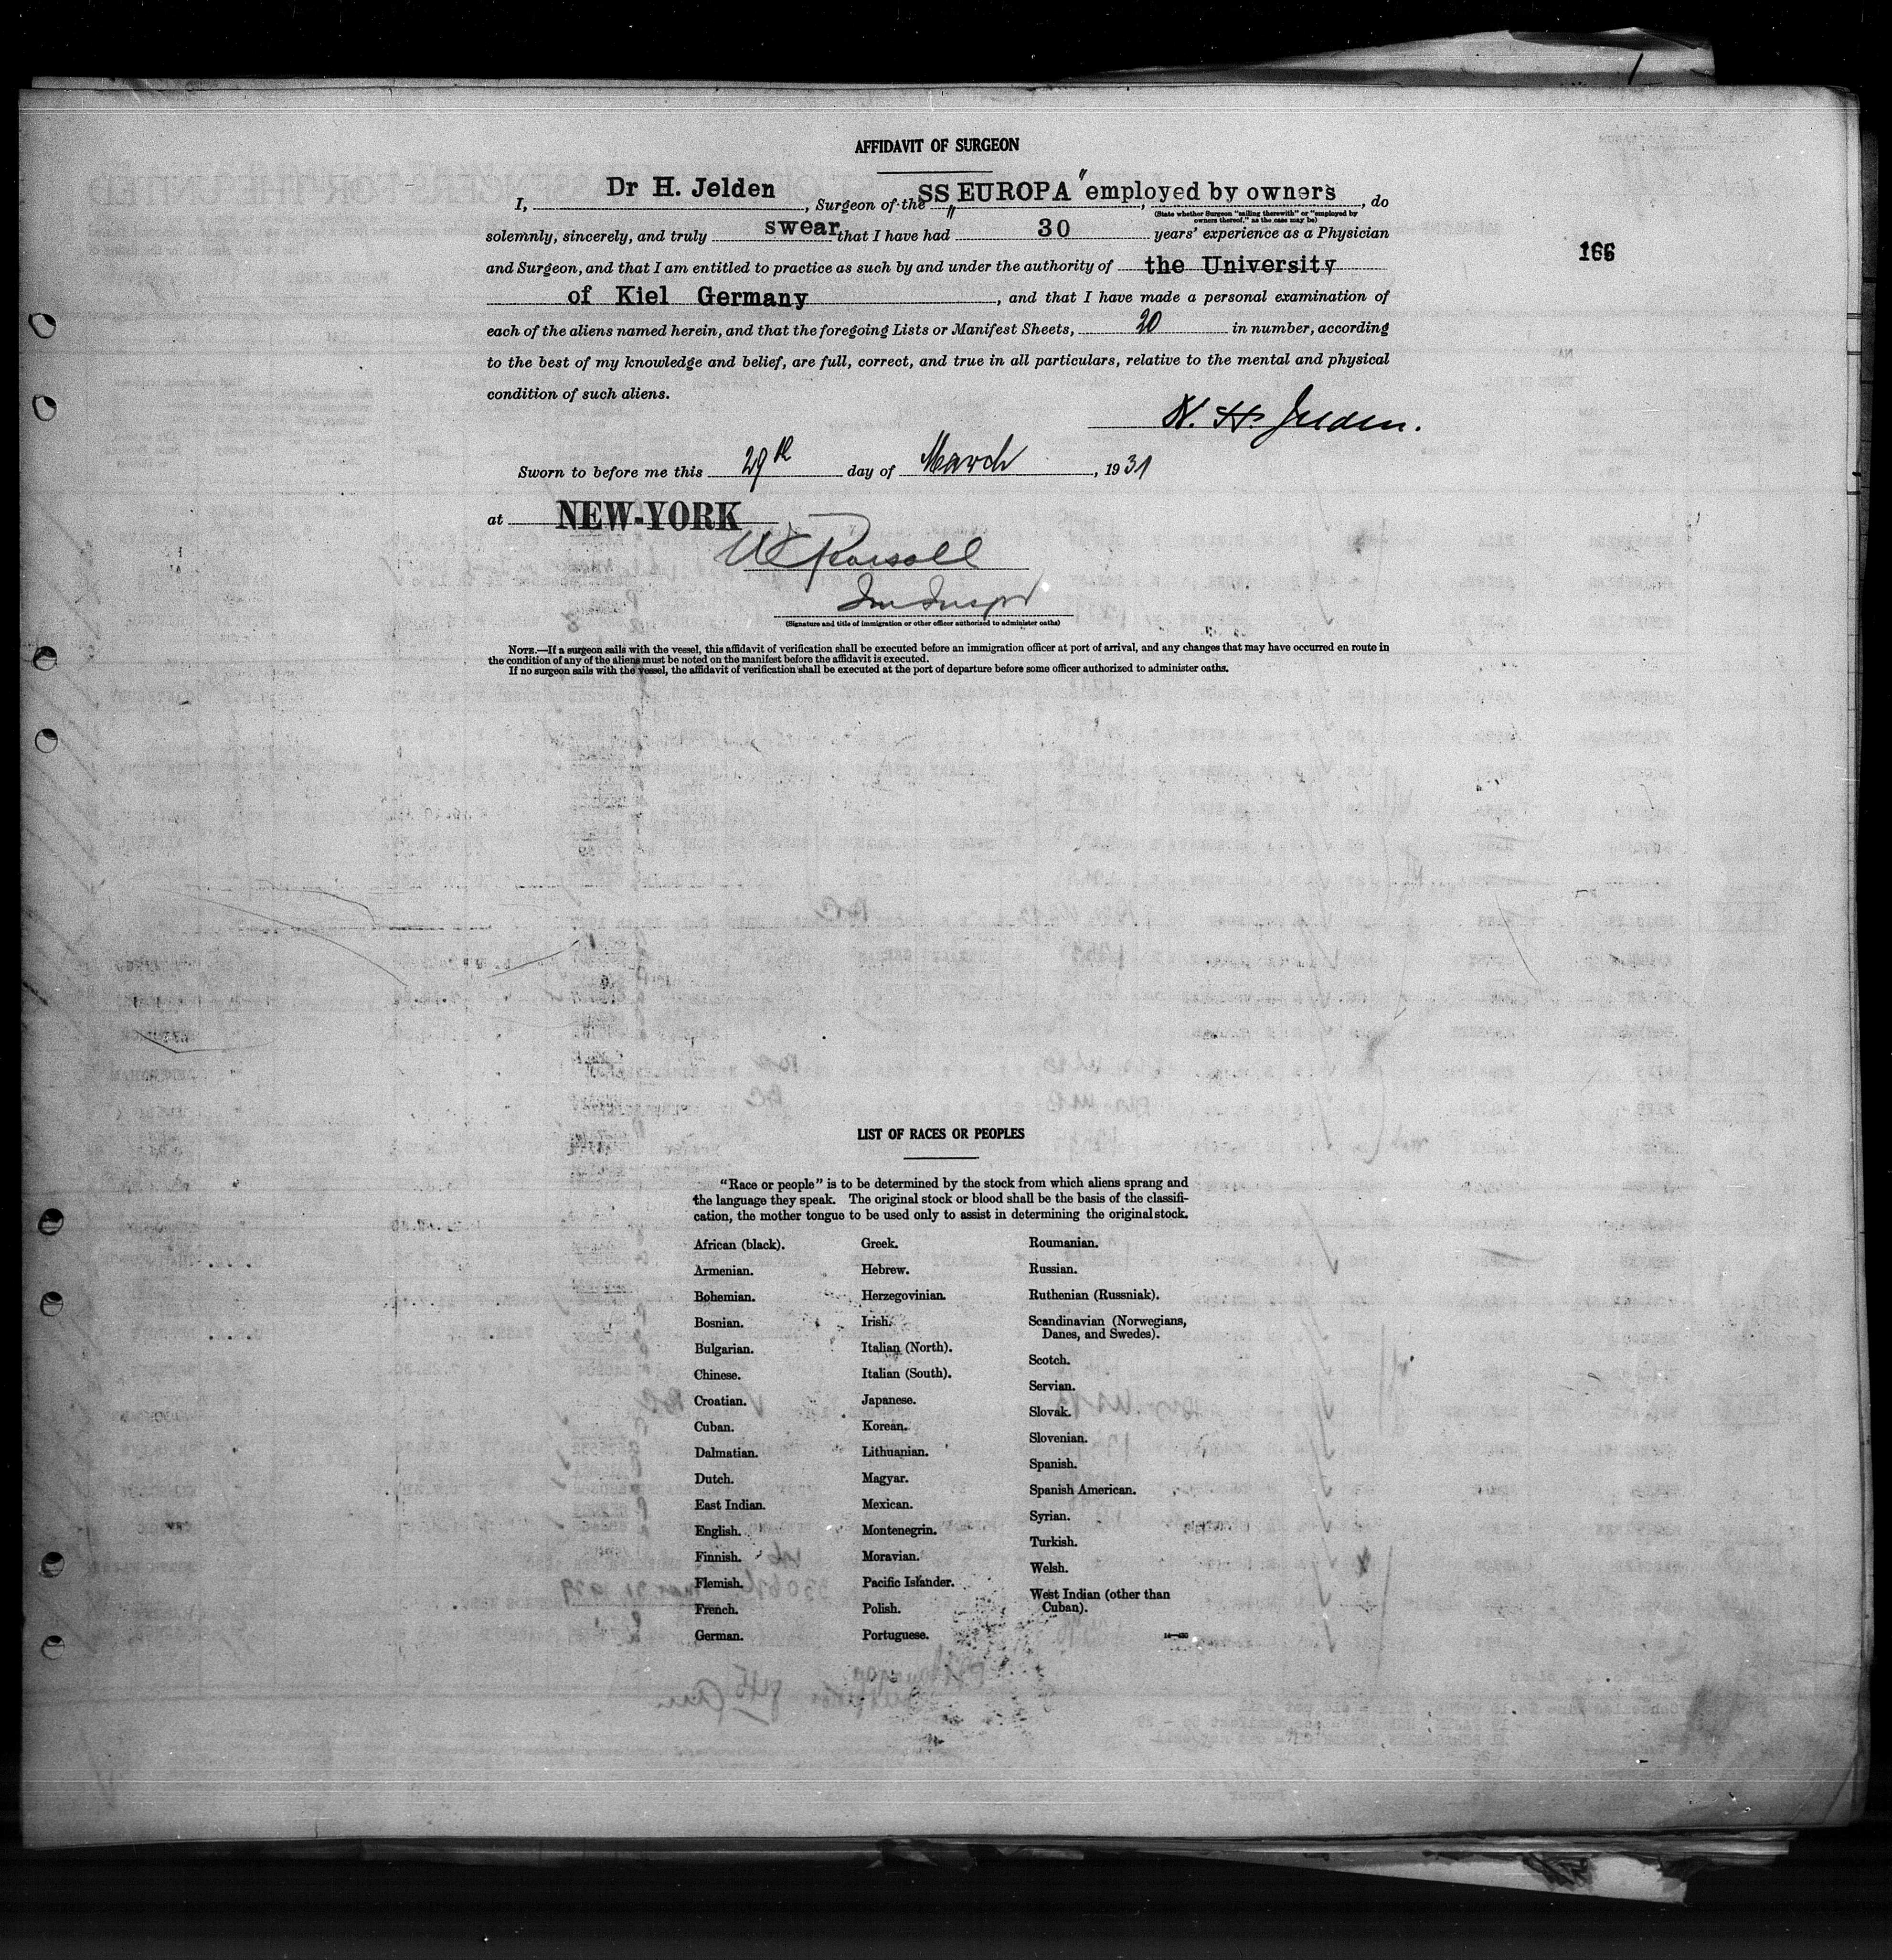 AFFIDAVIT OF SURGEON
I, Dr H. Jelden, Surgeon of the "SS EUROPA", employed by owners, do
(State whether Surgeon "sailing therewith" or "employed by
owners thereof," as the case may be)
solemnly, sincerely, and truly swear that I have had 30 years' experience as a Physician
166
and Surgeon, and that I am entitled to practice as such by and under the authority of the University
of Kiel Germany, and that I have made a personal examination of
each of the aliens named herein, and that the foregoing Lists or Manifest Sheets, 20 in number, according
to the best of my knowledge and belief, are full, correct, and true in all particulars, relative to the mental and physical
condition of such aliens.
H. Jelden.
Sworn to before me this 29th day of March, 1931
at NEW-YORK
(Signature and title of immigration or other officer authorized to administer oaths)
NOTE.—If a surgeon sails with the vessel, this affidavit of verification shall be executed before an immigration officer at port of arrival, and any changes that may have occurred en route in
the condition of any of the aliens must be noted on the manifest before the affidavit is executed.
If no surgeon sails with the vessel, the affidavit of verification shall be executed at the port of departure before some officer authorized to administer oaths.
LIST OF RACES OR PEOPLES
"Race or people" is to be determined by the stock from which aliens sprang and
the language they speak. The original stock or blood shall be the basis of the classifi-
cation, the mother tongue to be used only to assist in determining the original stock.
African (black).
Armenian.
Bohemian.
Bosnian.
Bulgarian.
Chinese.
Croatian.
Cuban.
Dalmatian.
Dutch.
East Indian.
English.
Finnish.
Flemish.
French.
German.
Greek.
Hebrew.
Herzegovinian.
Irish.
Italian (North).
Italian (South).
Japanese.
Korean.
Lithuanian.
Magyar.
Mexican.
Montenegrin.
Moravian.
Pacific Islander.
Polish.
Portuguese.
Roumanian.
Russian.
Ruthenian (Russniak).
Scandinavian (Norwegians,
Danes, and Swedes).
Scotch.
Servian.
Slovak.
Slovenian.
Spanish.
Spanish American.
Syrian.
Turkish.
Welsh.
West Indian (other than
Cuban).